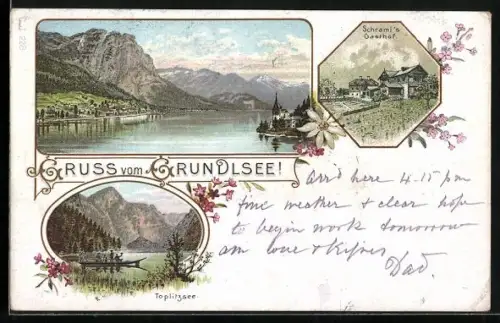 Schraml's
Gasthof.
GRUSS VOM GRUNDLSEE!
Arr'd here 4-15 pm
fine weather & clear hope
to begin work tomorrow
am love & Kisses
Dad.
Toplitzsee